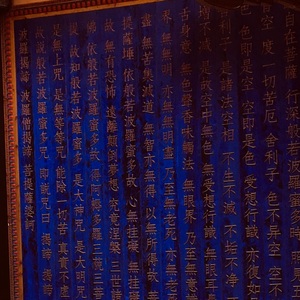 自在菩薩行深般若波
空度一切苦厄舍利子色不異空空不
色色即是空空即是色受想行識亦復如
利子是諸法空相不生不滅不垢不淨
增不減是故空中無色無受想行識無眼耳
舌身意無色聲香味觸法無眼界乃至無意
界無無明亦無無明盡乃至無老死亦無老
盡無苦集滅道無智亦無得以無所得故菩
提薩埵依般若波羅蜜多故心無罣礙無罣礙
故無有恐怖遠離顛倒夢想究竟涅槃三世諸
佛依般若波羅蜜多故得阿耨多羅三藐三菩
提故知般若波羅蜜多是大神咒是大明咒
是無上咒是無等等咒能除一切苦真實不虛
故說般若波羅蜜多咒即說咒曰揭諦揭諦
波羅揭諦波羅僧揭諦菩提薩婆訶